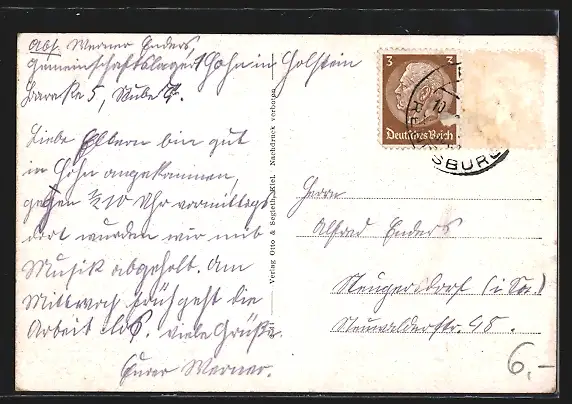 Abs. Werner Enders,
Gemeinschaftslager Hohn in Holstein
Baracke 5, Stube 7.
Liebe Eltern bin gut
in Hohn angekommen,
gegen ½10 Uhr vormittags
dort wurden wir mit
Musik abgeholt. Am
Mittwoch früh geht die
Arbeit los. viele Grüße
Eurer Werner.
Verlag Otto & Segleth, Kiel. Nachdruck verboten
3 3
Deutsches Reich
SBURG
Herrn
Alfred Enders
Neugersdorf (i Sa.)
Neuwalderstr. 48.
6,-